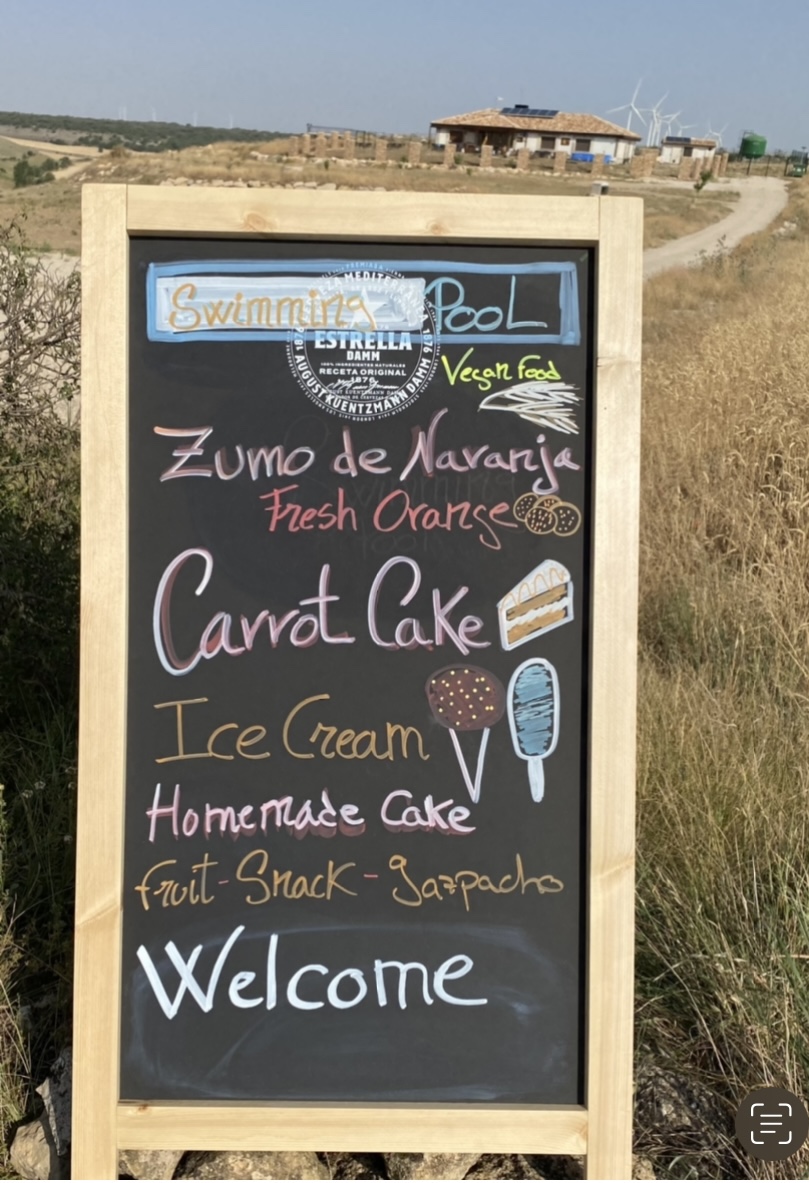 Swimming PooL
ESTRELLA
DAMM
RECETA ORIGINAL
1876
AUGUST KUENTZMANN DAMM
Vegan Food
Zumo de Naranja
Fresh Orange
Carrot Cake
Ice Cream
Homemade Cake
fruit - Snack - gazpacho
Welcome